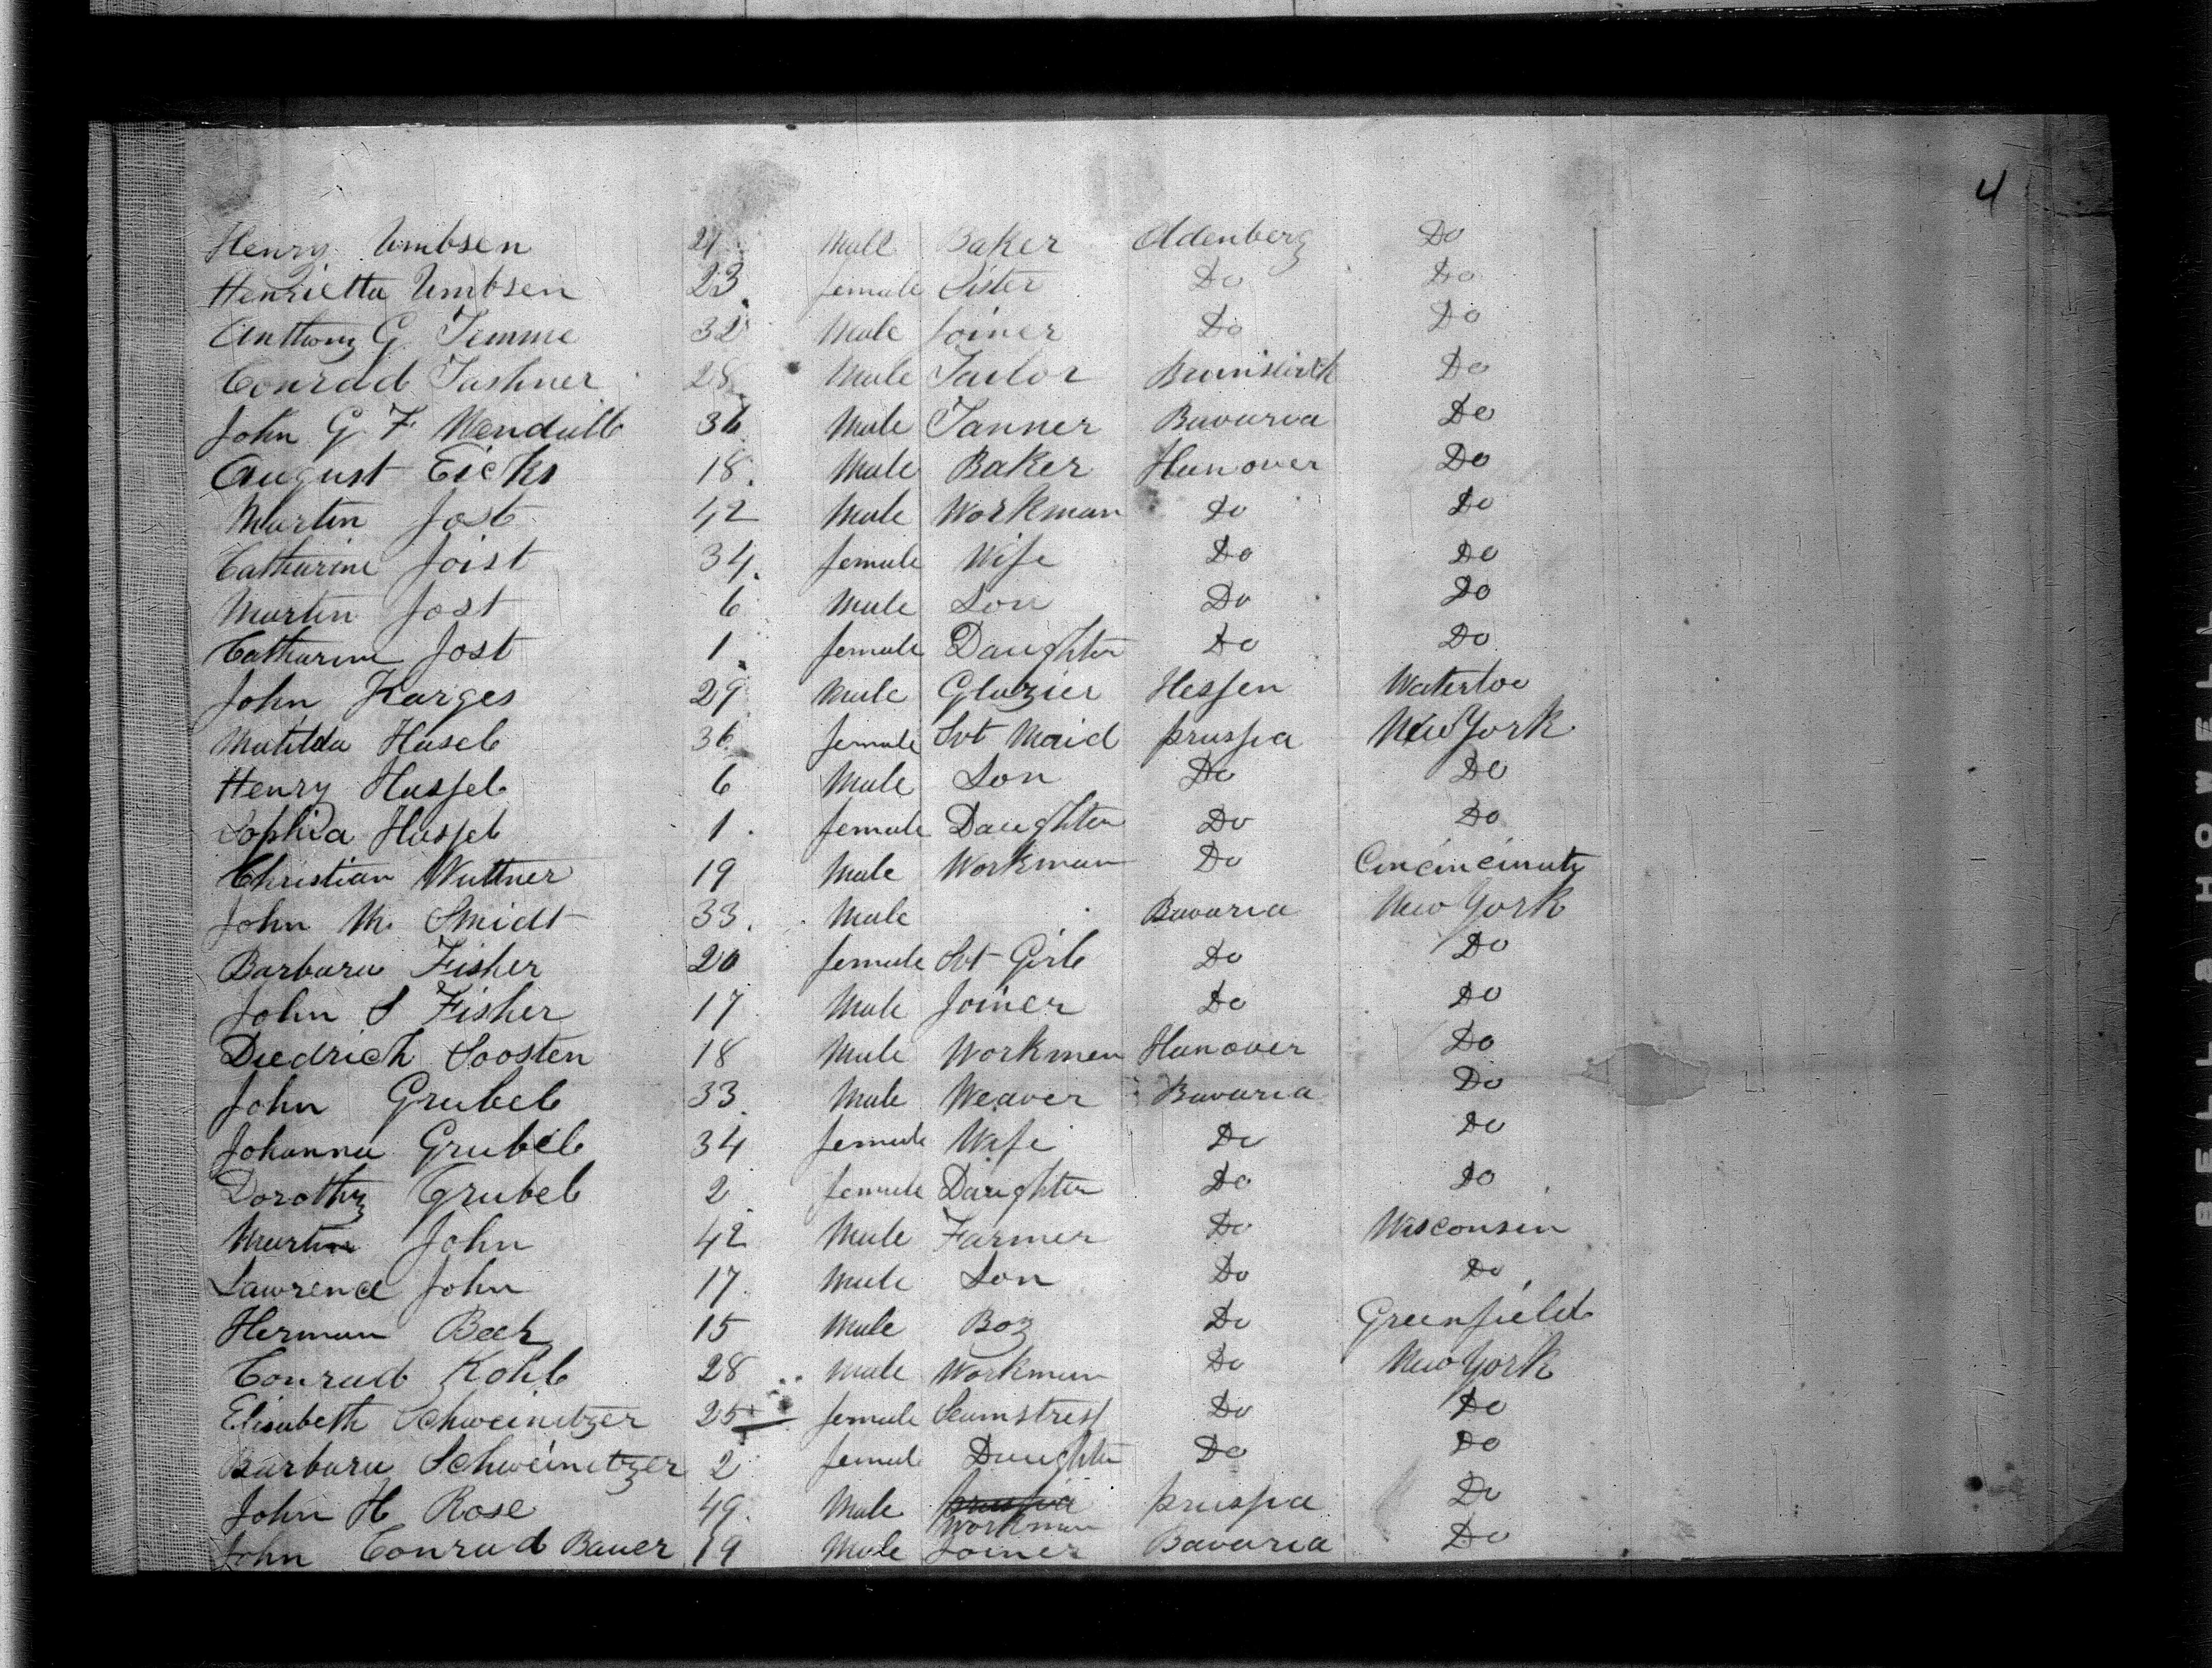 4
Henry Umbsen 21 Male Baker Oldenberg Do
Henrietta Umbsen 23 female Sister Do Do
Anthony G. Timme 32 Male Joiner Do Do
Conrad Tashner 28 Male Tailor Do
John G F Mendall 36 Male Tanner Bavaria Do
August Eicks 18 Male Baker Hanover Do
Martin Jost 42 Male Workman Do Do
Catharine Joist 34 female Wife Do Do
Martin Jost 6 Male Son Do Do
Catharine Jost 1 female Daughter Do Do
John Karges 29 Male Glazier Hessen Waterloo
Matilda Hasel 36 female Svt Maid prussia New York
Henry Hassel 6 Male Son Do Do
Sophia Hassel 1 female Daughter Do Do
Christian Wuttner 19 Male Workman Do Cincincinaty
John M. Smidt 33 Male Bavaria New York
Barbara Fisher 20 female Svt Girl Do Do
John S Fisher 17 Male Joiner Do Do
Diedrich Soosten 18 Male Workmen Hanover Do
John Grubel 33 Male Weaver Bavaria Do
Johanna Grubel 34 female Wife Do Do
Dorothy Grubel 2 female Daughter Do Do
Martin John 42 Male Farmer Do Wisconsin
Lawrence John 17 Male Son Do Do
Herman Beck 15 Male Boy Do Greenfield
Conrad Kohl 28 Male Workman Do New York
Elisabeth Schweinitzer 25 female Seamstress Do Do
Barbara Schweinitzer 2 female Daughter Do Do
John H Rose 49 Male prussia Workman prussia Do
John Conrad Bauer 19 Male Joiner Bavaria Do
BELL & HOWELL